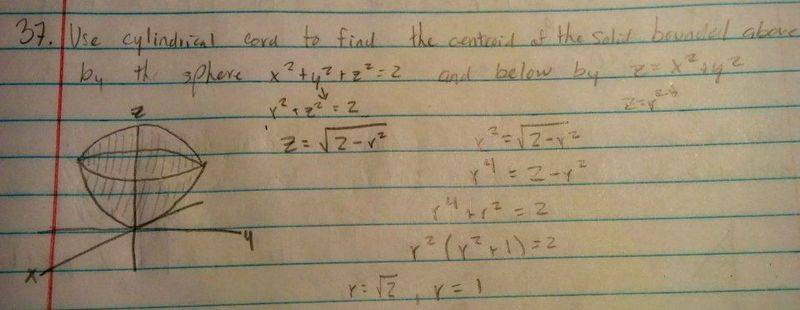 37. Use cylindrical cord to find the centroid of the solid bounded above
by the sphere x²+y²+z²=2 and below by z=x²+y²
r²+z²=2
z=r²
z
z=√2-r²
r²=√2-r²
r⁴=2-r²
r⁴+r²=2
y
r²(r²+1)=2
x
r=√2, r=1